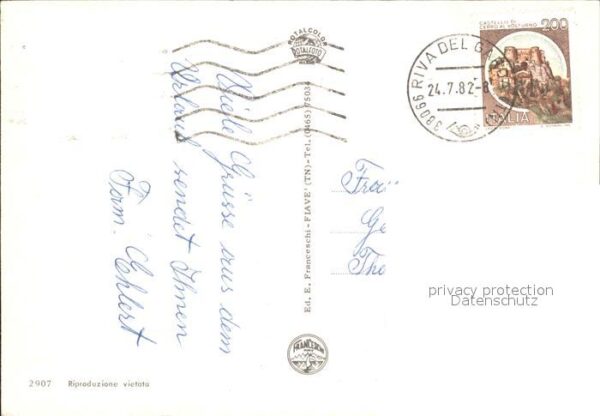 Viele Grüsse aus dem
Urlaub sendet Ihnen
Fam. Ehlert
TOTALCOLOR
TOTALFOTO
Ed. E. Franceschi - FIAVE' (TN) - Tel. (0465) 75034
FRANCESCHI
CASTELLO DI
CERRO AL VOLTURNO
200
ITALIA
38066 RIVA DEL G
24.7.82-8
Ge
The
privacy protection
Datenschutz
2907 Riproduzione vietata